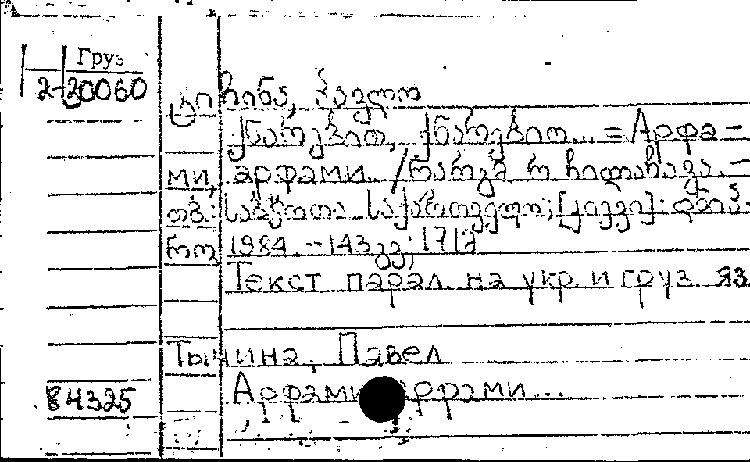 Груз
2-20060
ტიჩინა, პავლო
ქნარებით, ქნარებით... = Арфа-
ми, арфами. /თარგმ. რ. ჩილაჩავა. –
თბ.: საბჭოთა საქართველო; [კიევი]: დნიპ-
რო, 1984. – 143 გვ.; 17სმ
Текст парал. на укр. и груз. яз.
Тычина, Павел
Арфами, арфами...
84325